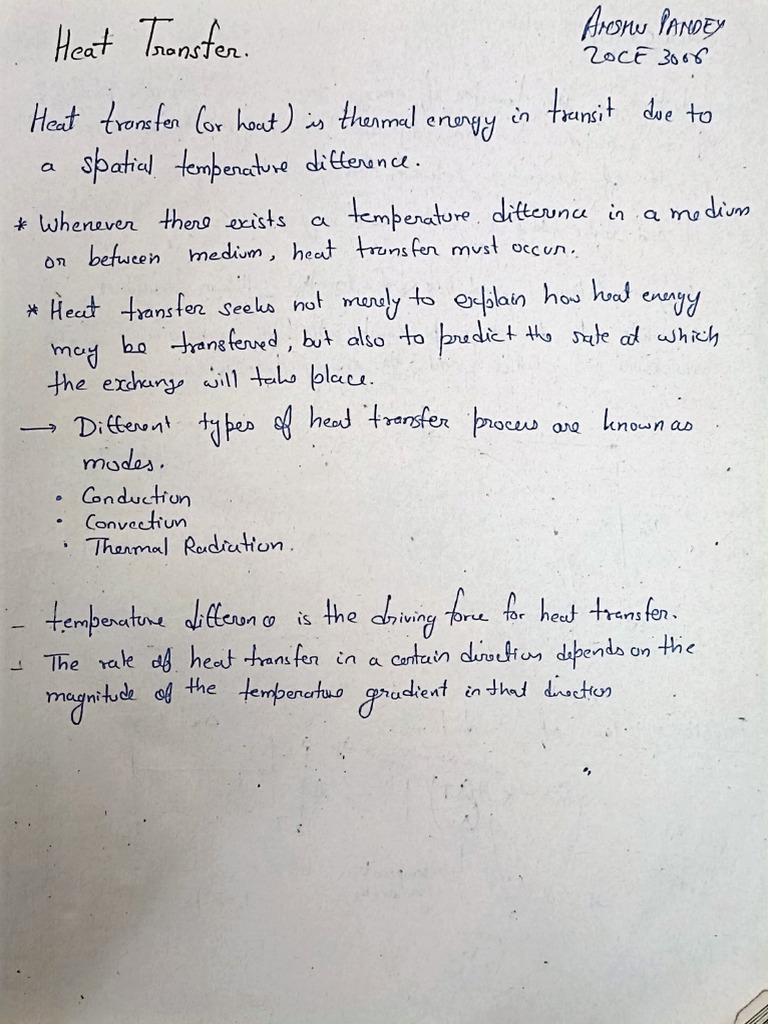 Heat Transfer.
ANSHU PANDEY
20CE 3006
Heat transfer (or heat) is thermal energy in transit due to
a spatial temperature difference.
* Whenever there exists a temperature difference in a medium
or between medium, heat transfer must occur.
* Heat transfer seeks not merely to explain how heat energy
may be transferred, but also to predict the rate at which
the exchange will take place.
→ Different types of heat transfer process are known as
modes.
• Conduction
• Convection
• Thermal Radiation.
- temperature difference is the driving force for heat transfer.
- The rate of heat transfer in a certain direction depends on the
magnitude of the temperature gradient in that direction